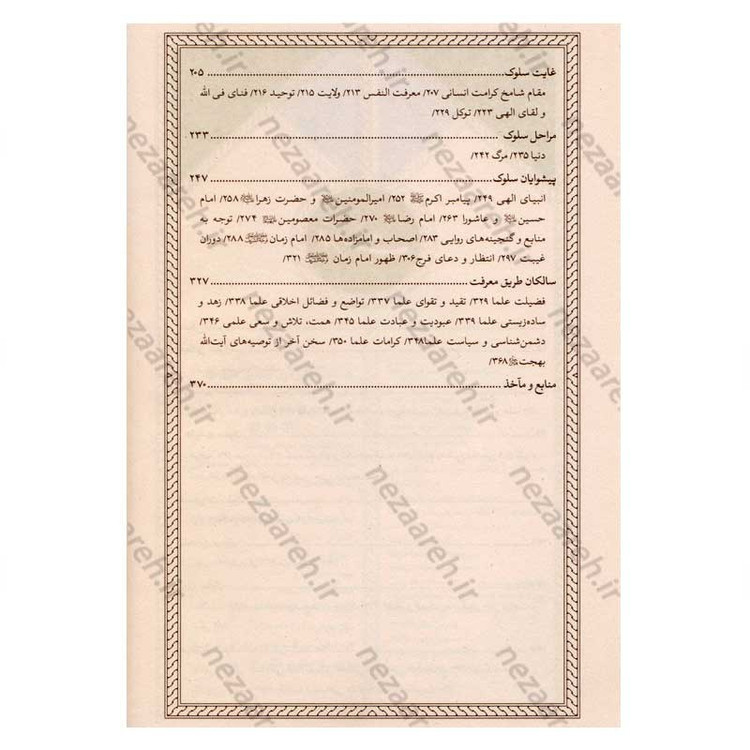 غایت سلوک ........ ۲۰۵
مقام شامخ کرامت انسانی ۲۰۷/ معرفت النفس ۲۱۳/ ولایت ۲۱۵/ توحید ۲۱۶/ فنای فی الله
و لقای الهی ۲۲۳/ توکل ۲۲۹/
مراحل سلوک ........ ۲۳۳
دنیا ۲۳۵/ مرگ ۲۴۲/
پیشوایان سلوک ........ ۲۴۷
انبیای الهی ۲۴۹/ پیامبر اکرمﷺ ۲۵۲/ امیرالمومنین و حضرت زهرا ۲۵۸/ امام
حسین و عاشورا ۲۶۳/ امام رضا ۲۷۰/ حضرات معصومین ۲۷۴/ توجه به
منابع و گنجینه‌های روایی ۲۸۳/ اصحاب و امامزاده‌ها ۲۸۵/ امام زمان ۲۸۸/ دوران
غیبت ۲۹۷/ انتظار و دعای فرج ۳۰۶/ ظهور امام زمان ۳۲۱/
سالکان طریق معرفت ........ ۳۲۷
فضیلت علما ۳۲۹/ تقید و تقوای علما ۳۳۷/ تواضع و فضائل اخلاقی علما ۳۳۸/ زهد و
ساده‌زیستی علما ۳۳۹/ عبودیت و عبادت علما ۳۴۵/ همت، تلاش و سعی علمی ۳۴۶/
دشمن‌شناسی و سیاست علما ۳۴۸/ کرامات علما ۳۵۰/ سخن آخر از توصیه‌های آیت‌الله
بهجت ۳۶۸/
منابع و مآخذ ........ ۳۷۰
nezaareh.ir